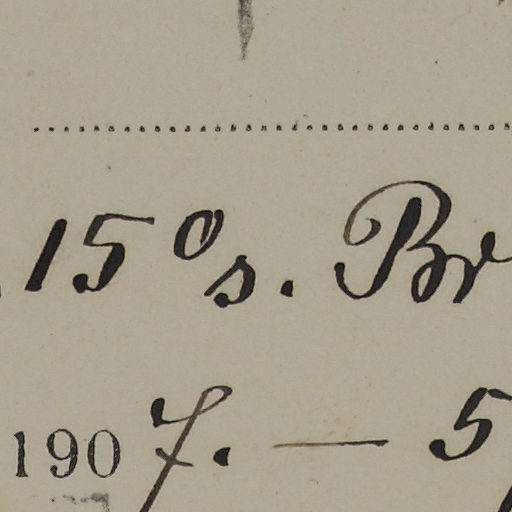 15° s. Br
1907. — 5